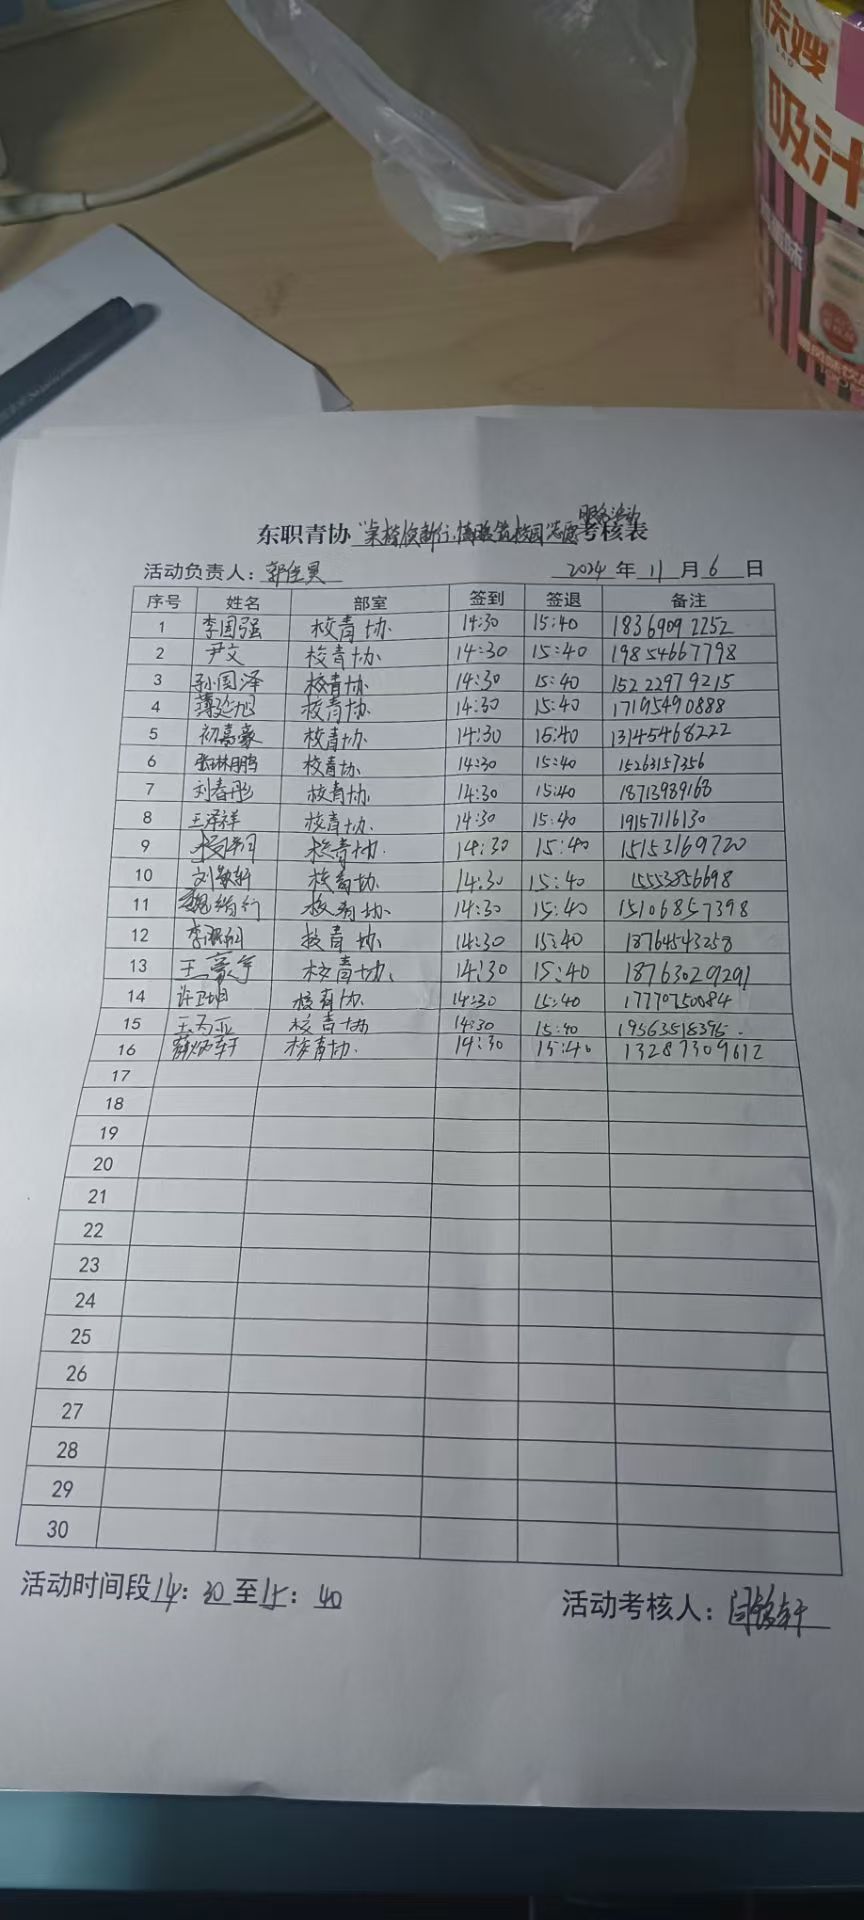 嫂
吸汁
味
服务活动
东职青协"桌椅换新行,情暖筑校园"志愿考核表
活动负责人:郭佳昊 2024年11月6日
序号 姓名 部室 签到 签退 备注
1 李国强 校青协 14:30 15:40 18369092252
2 尹文 校青协 14:30 15:40 19854667798
3 孙国泽 校青协 14:30 15:40 15222979215
4 薄延旭 校青协 14:30 15:40 17195490888
5 初嘉豪 校青协 14:30 15:40 13145468222
6 张琳鹏 校青协 14:30 15:40 15263157356
7 刘春彤 校青协 14:30 15:40 18713989168
8 王泽祥 校青协 14:30 15:40 19157116130
9 校青协 14:30 15:40 15153169720
10 刘敏轩 校青协 14:30 15:40 15553856698
11 校青协 14:30 15:40 15106857398
12 校青协 14:30 15:40 18764543258
13 王豪宇 校青协 14:30 15:40 18763029291
14 校青协 14:30 15:40 17770750084
15 校青协 14:30 15:40 19563518395
16 薛炳轩 校青协 14:30 15:40 13287309612
17
18
19
20
21
22
23
24
25
26
27
28
29
30
活动时间段14:30至15:40 活动考核人:闫铭轩